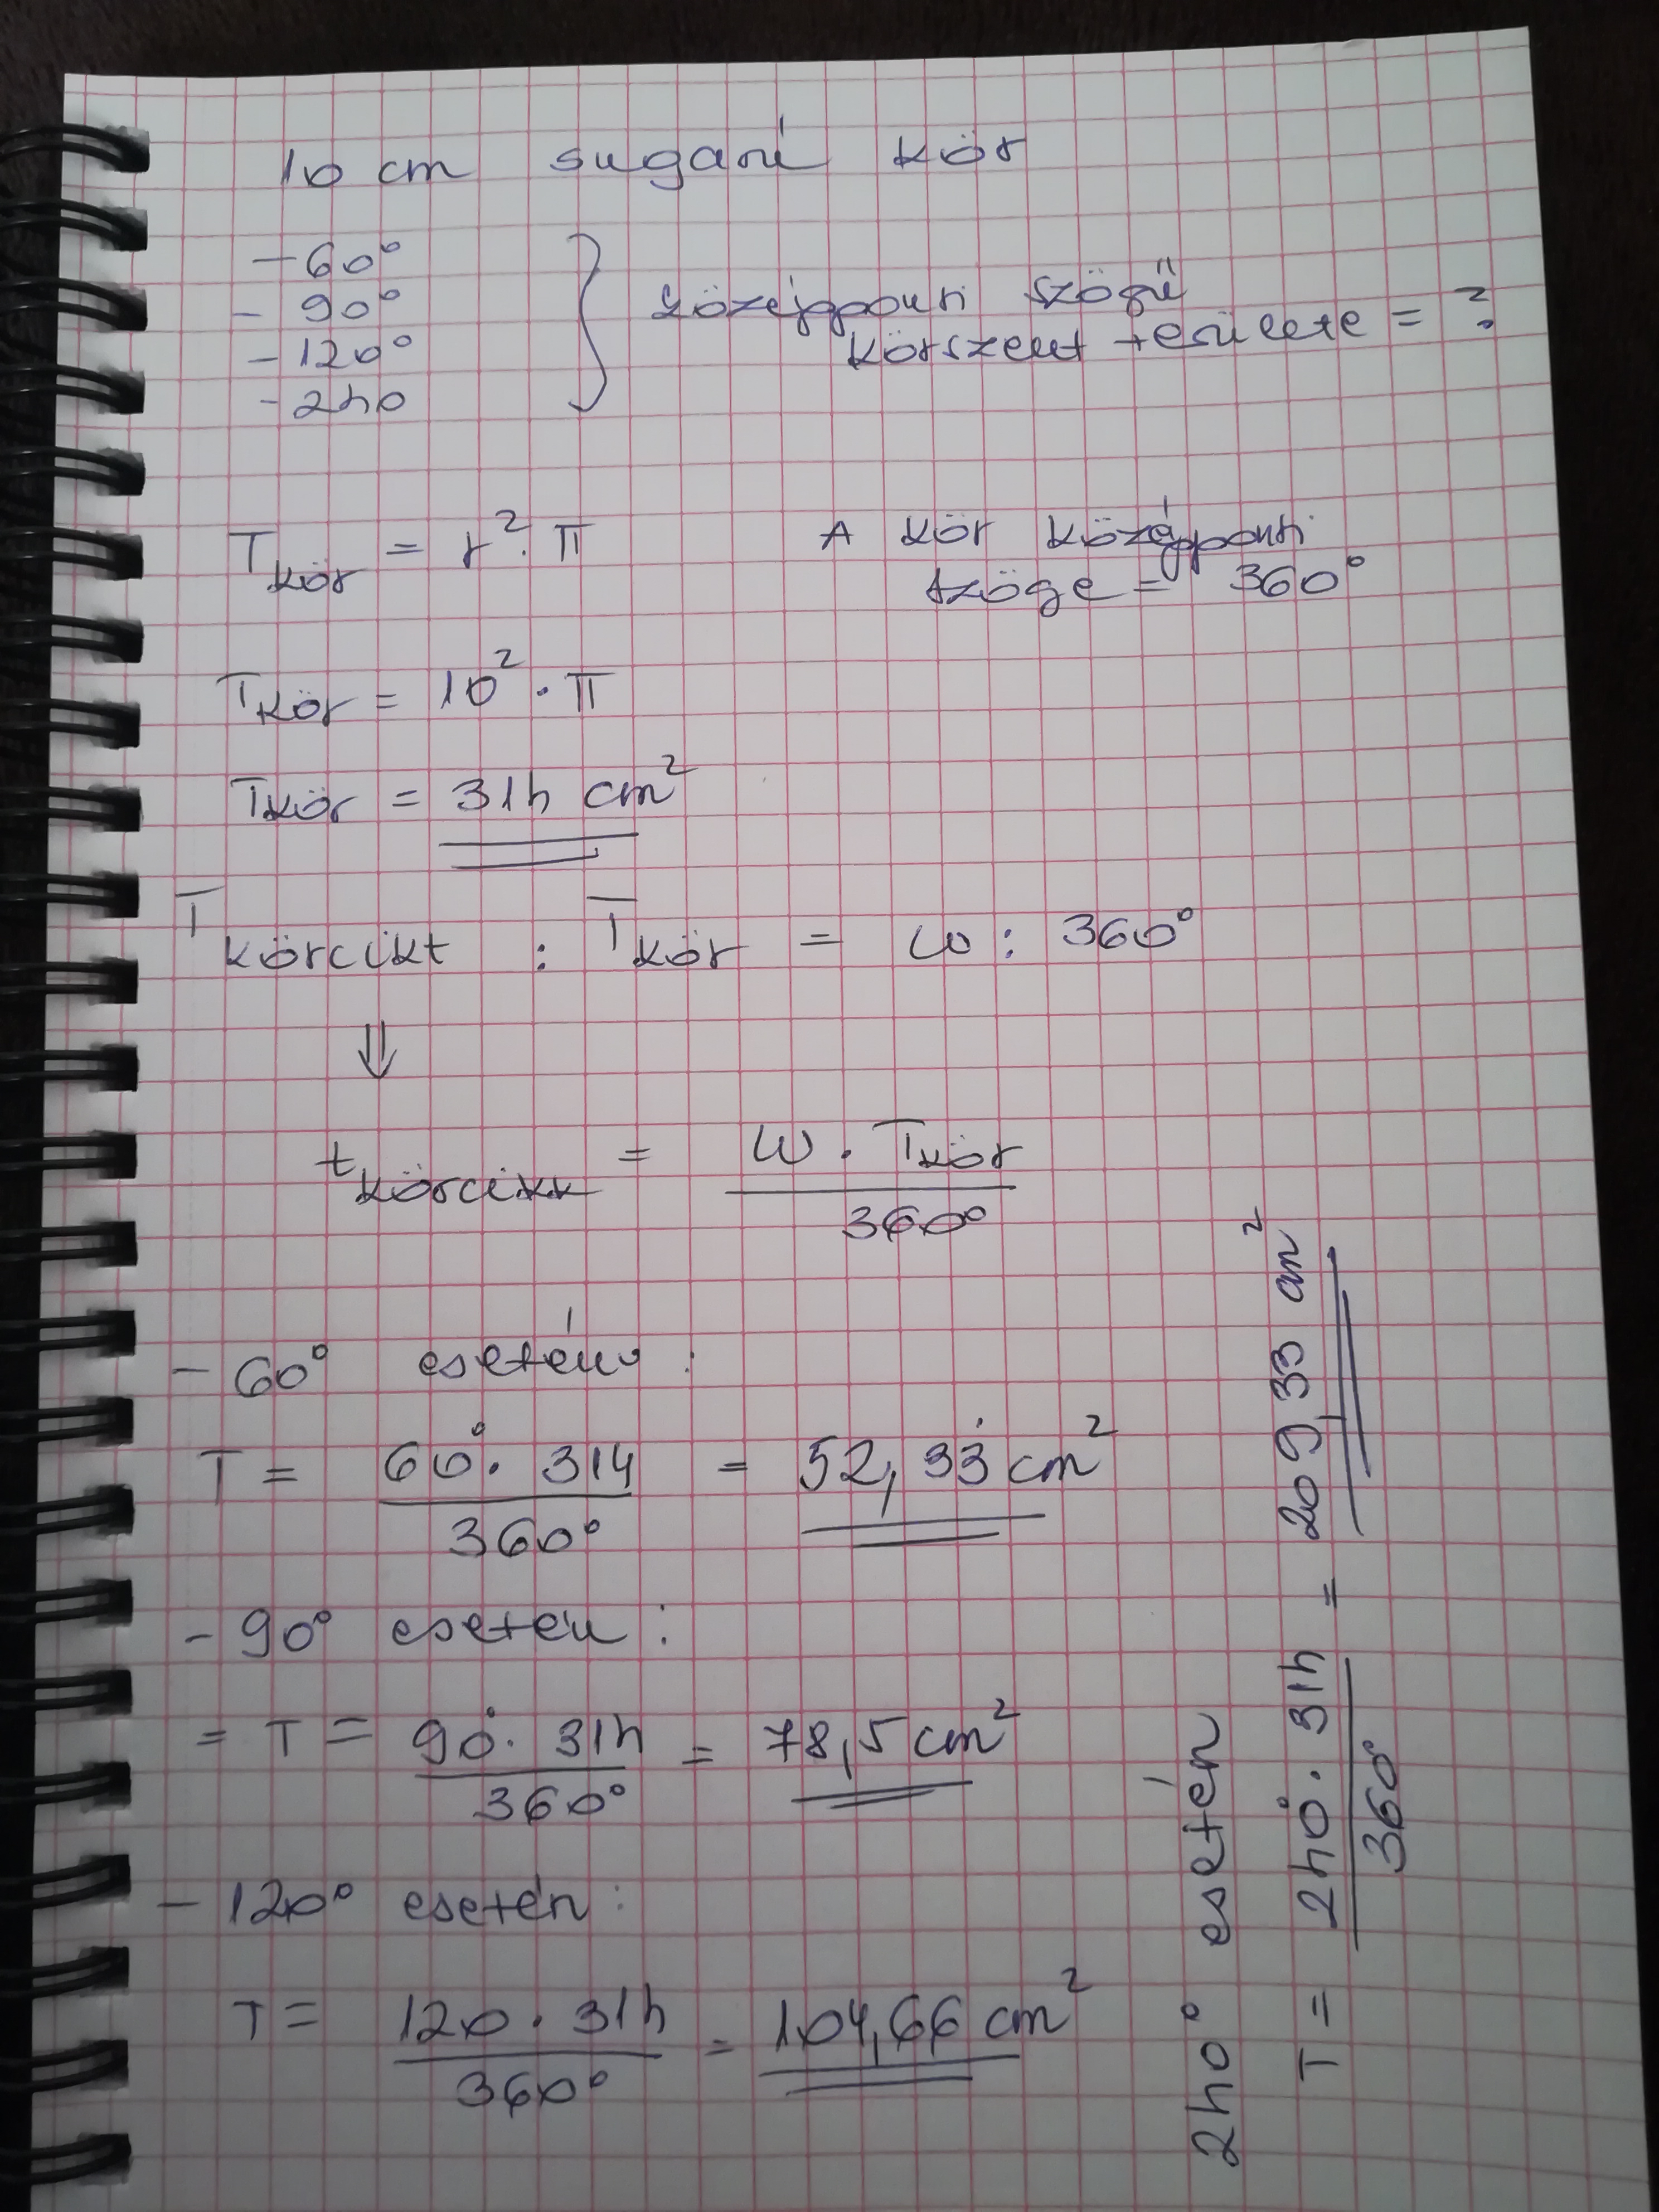 10 cm sugarú kör
- 60°
- 90°
- 120°
- 240
középponti szögű
körszelet területe = ?
Tkör = r² · π
A kör középponti
szöge = 360°
Tkör = 10² · π
Tkör = 314 cm²
Tkörcikk : Tkör = ω : 360°
⇓
tkörcikk = ω · Tkör
360°
- 60° esetén :
T = 60° · 314 = 52,33 cm²
360°
- 90° esetén :
= T = 90° · 314 = 78,5 cm²
360°
- 120° esetén :
T = 120 · 314 = 104,66 cm²
360°
240° esetén
T = 240° · 314 = 209,33 cm²
360°